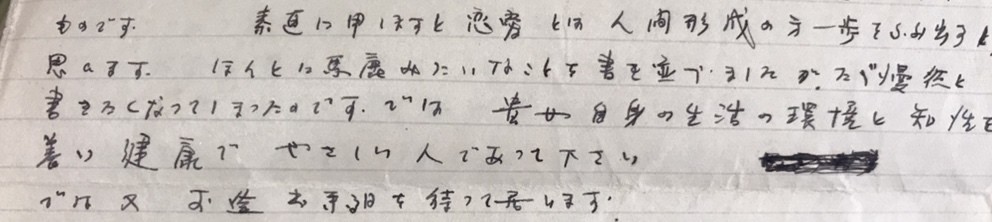 ものです. 素直に申しますと 恋愛 とは 人間形成の第一歩をふみ出すと
思います. ほんとに馬鹿みたいなことを書き並べましたが、ただ漫然と
書きたくなってしまったのです. では 貴女自身の生活の環境と知性を
養い 健康で やさしい人であって下さい
では又 お手紙を待って居ります.